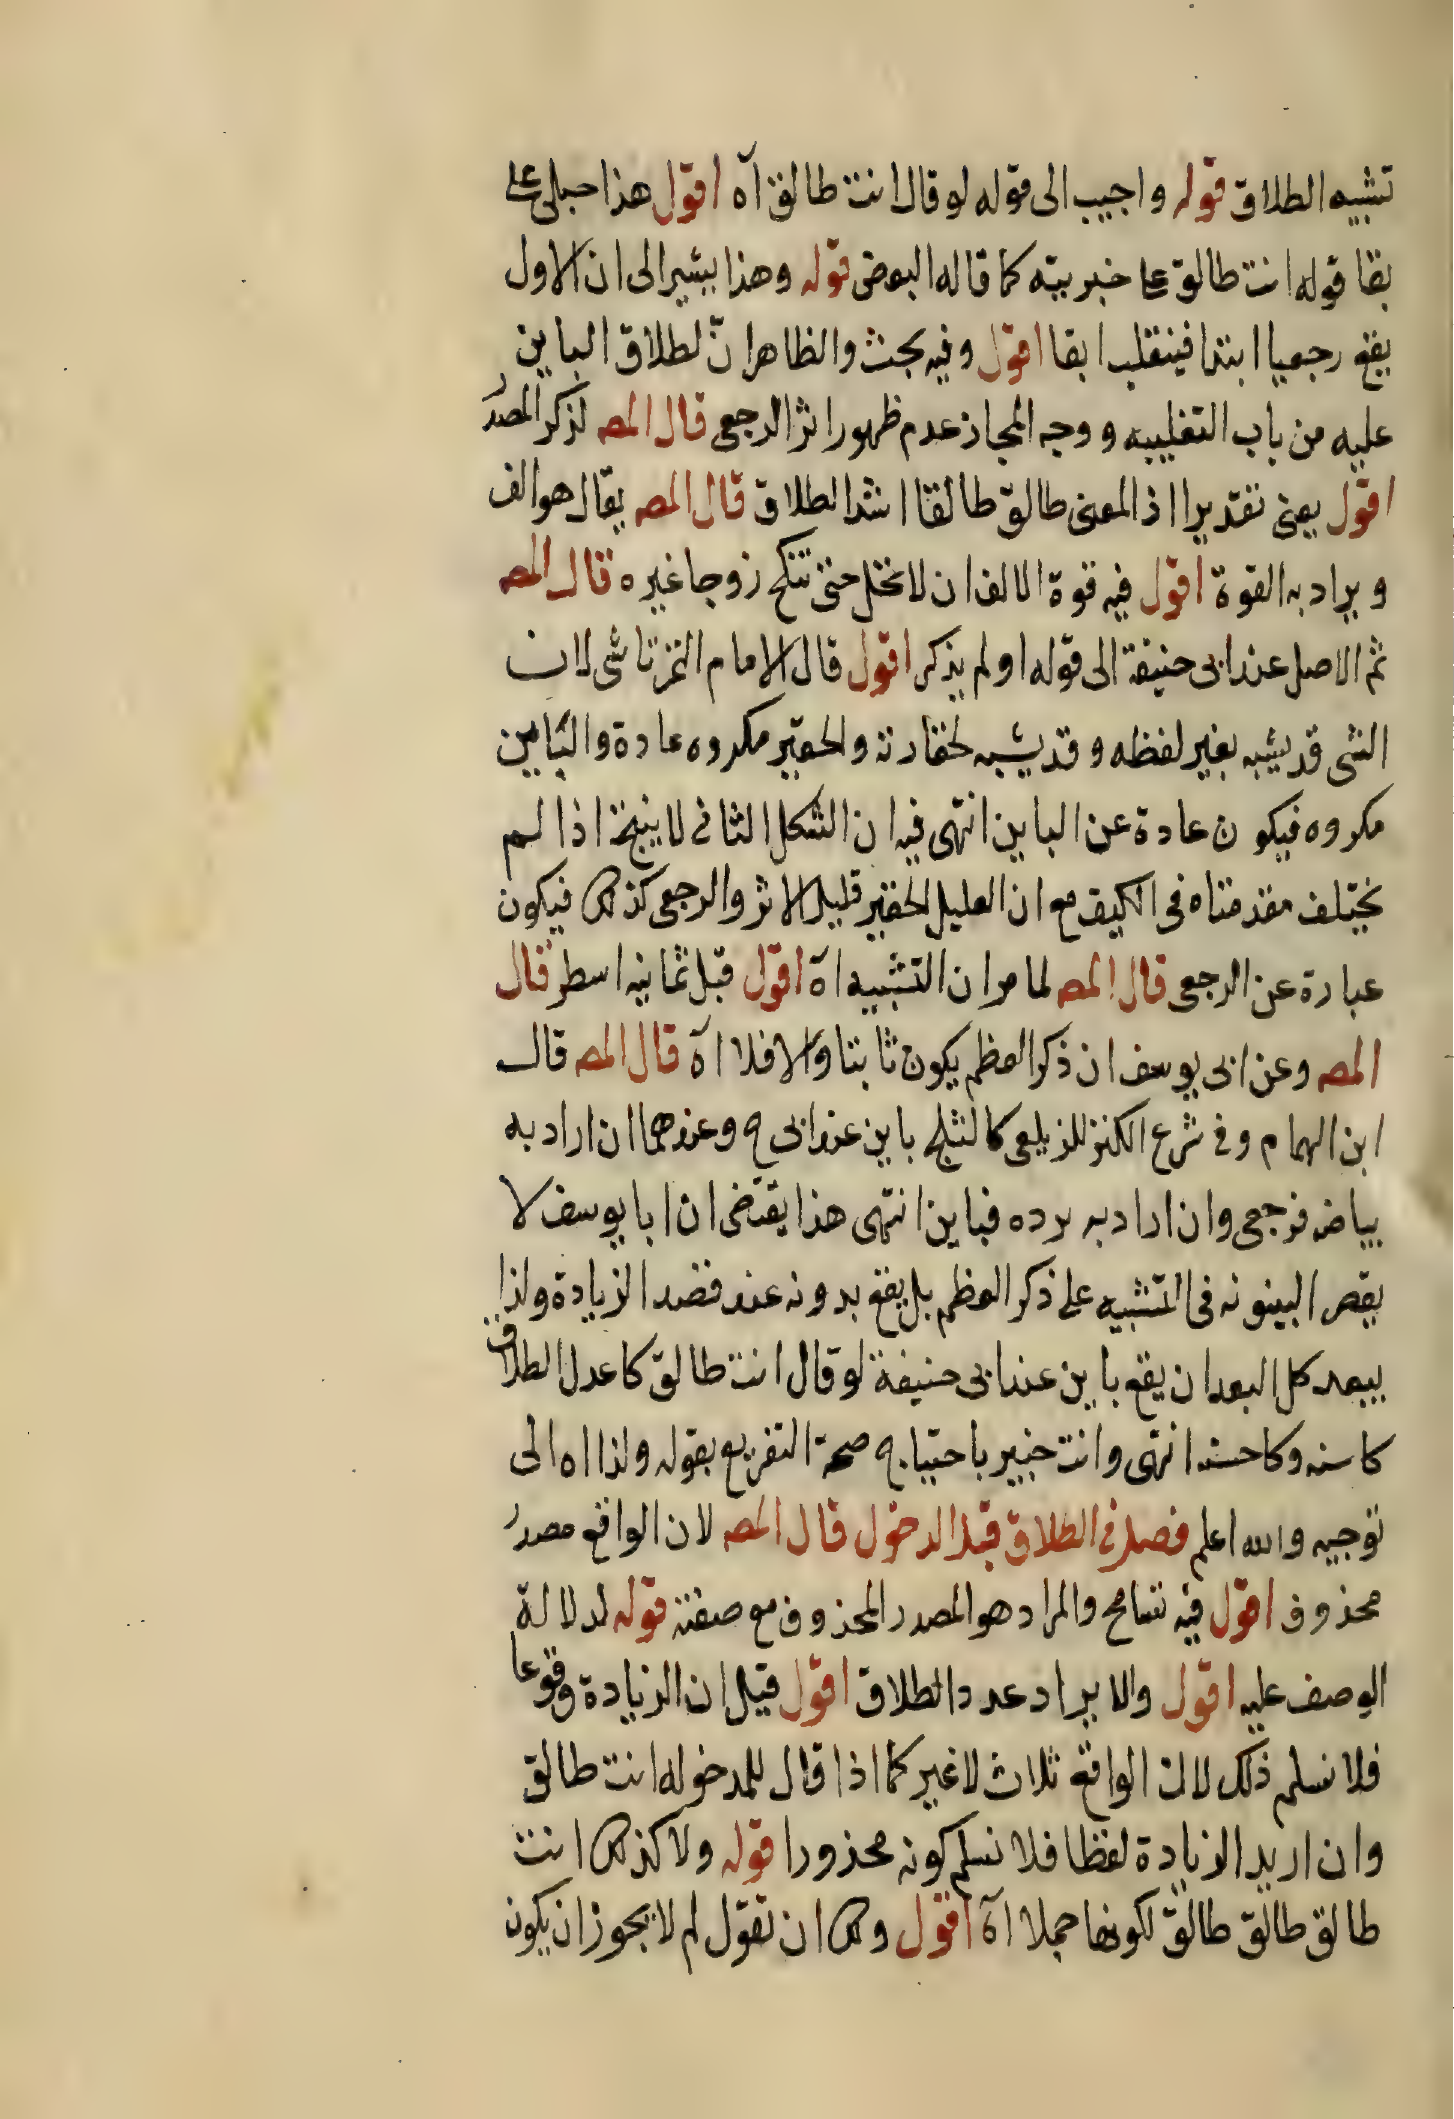 تشبيه الطلاق قوله واجيب الى قوله لو قال انت طالق آه اقول هذا مبنى على
بقا قوله انت طالق على خبريته كما قاله البعض قوله وهذا يشير الى ان الاول
يقع رجعيا ابتدا فينقلب ابقا اقول وفيه بحث والظاهر انّ لطلاق الباين
عليه من باب التغليب ووجه المجاز عدم ظهور اثر الرجعى قال المص لذكر المصدر
اقول يعنى تقديرا اذ المعنى طالق طالقا اشد الطلاق قال المص يقال هو الف
ويراد به القوة اقول فيه قوة الالف ان لا تحل حتى تنكح زوجا غيره قال المص
ثم الاصل عند ابى حنيفة الى قوله او لم يذكر اقول قال الامام التمرتاشى لان
الشى قد يشبه بغير لفظه وقد يشبه لحقارته والحقير مكروه عادة والباين
مكروه فيكون عادة عن الباين انتهى فيه ان الشكل الثانى لا ينتج اذا لم
يختلف مقدمتاه فى الكيف مع ان العليل الحقير قليل الاثر والرجعى كذلك فيكون
عبارة عن الرجعى قال المص لما مر ان التشبيه آه اقول قبل ثمانيه اسطر قال
المص وعن ابى يوسف ان ذكر العظم يكون ثابتا والا فلا آه قال المص قال
ابن الهمام وفى شرع الكنز للزيلعى كالثلج باين عند ابى ح وعندهما ان اراد به
بياضه فرجعى وان اراد به برده فباين انتهى هذا يقتضى ان ابا يوسف لا
يقصر البينونه فى التشبيه على ذكر العظم بل يقع بدونه عند قصد الزيادة ولذا
يبعد كل البعد ان يقع باين عند ابى حنيفة لو قال انت طالق كاعدل الطلاق
كاسنه وكاحسنه انتهى وانت خبير باحتياج صحة التفريع بقوله ولذا اه الى
توجيه والله اعلم فصل فى الطلاق قبل الدخول قال المص لان الواقع مصدر
محذوف اقول فيه تسامح والمراد هو المصدر المحذوف مع صفته قوله لدلالة
الوصف عليه اقول والا يراد عدد الطلاق اقول قيل ان الزيادة وقوعا
فلا نسلم ذلك لان الواقع ثلاث لا غير كما اذا قال للمدخوله انت طالق
وان اريد الزيادة لفظا فلا نسلم كونه محذورا قوله ولا كذلك انت
طالق طالق طالق لكونها جملا آه اقول ولك ان تقول لم لا يجوز ان يكون